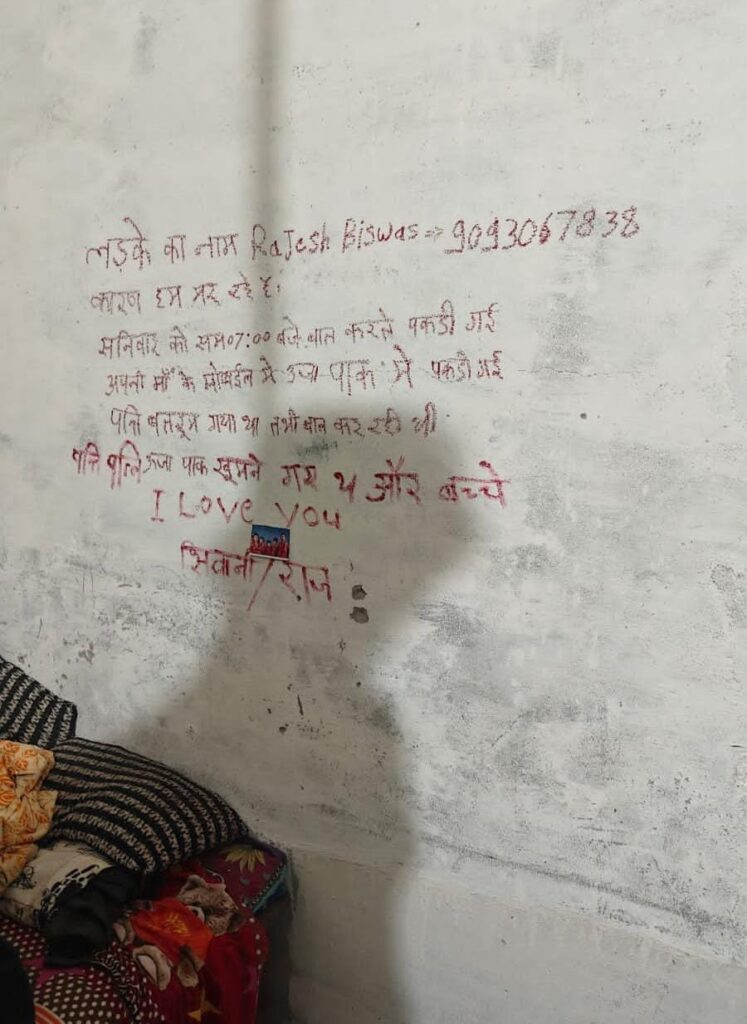 लड़के का नाम RaJesh Biswas => 9093067838
कारण हम मर रहे है।
सनिवार को सम07:00 बजे बात करते पकडी गई
अपनी माँ के मोबाईल मे ऊजा पाक मे पकडी गई
पति बातरूम गया था तभी बात कर रही थी
पति पत्नि ऊजा पाक घूमने गय थ और बच्चे
I Love you
शिवानी/राज